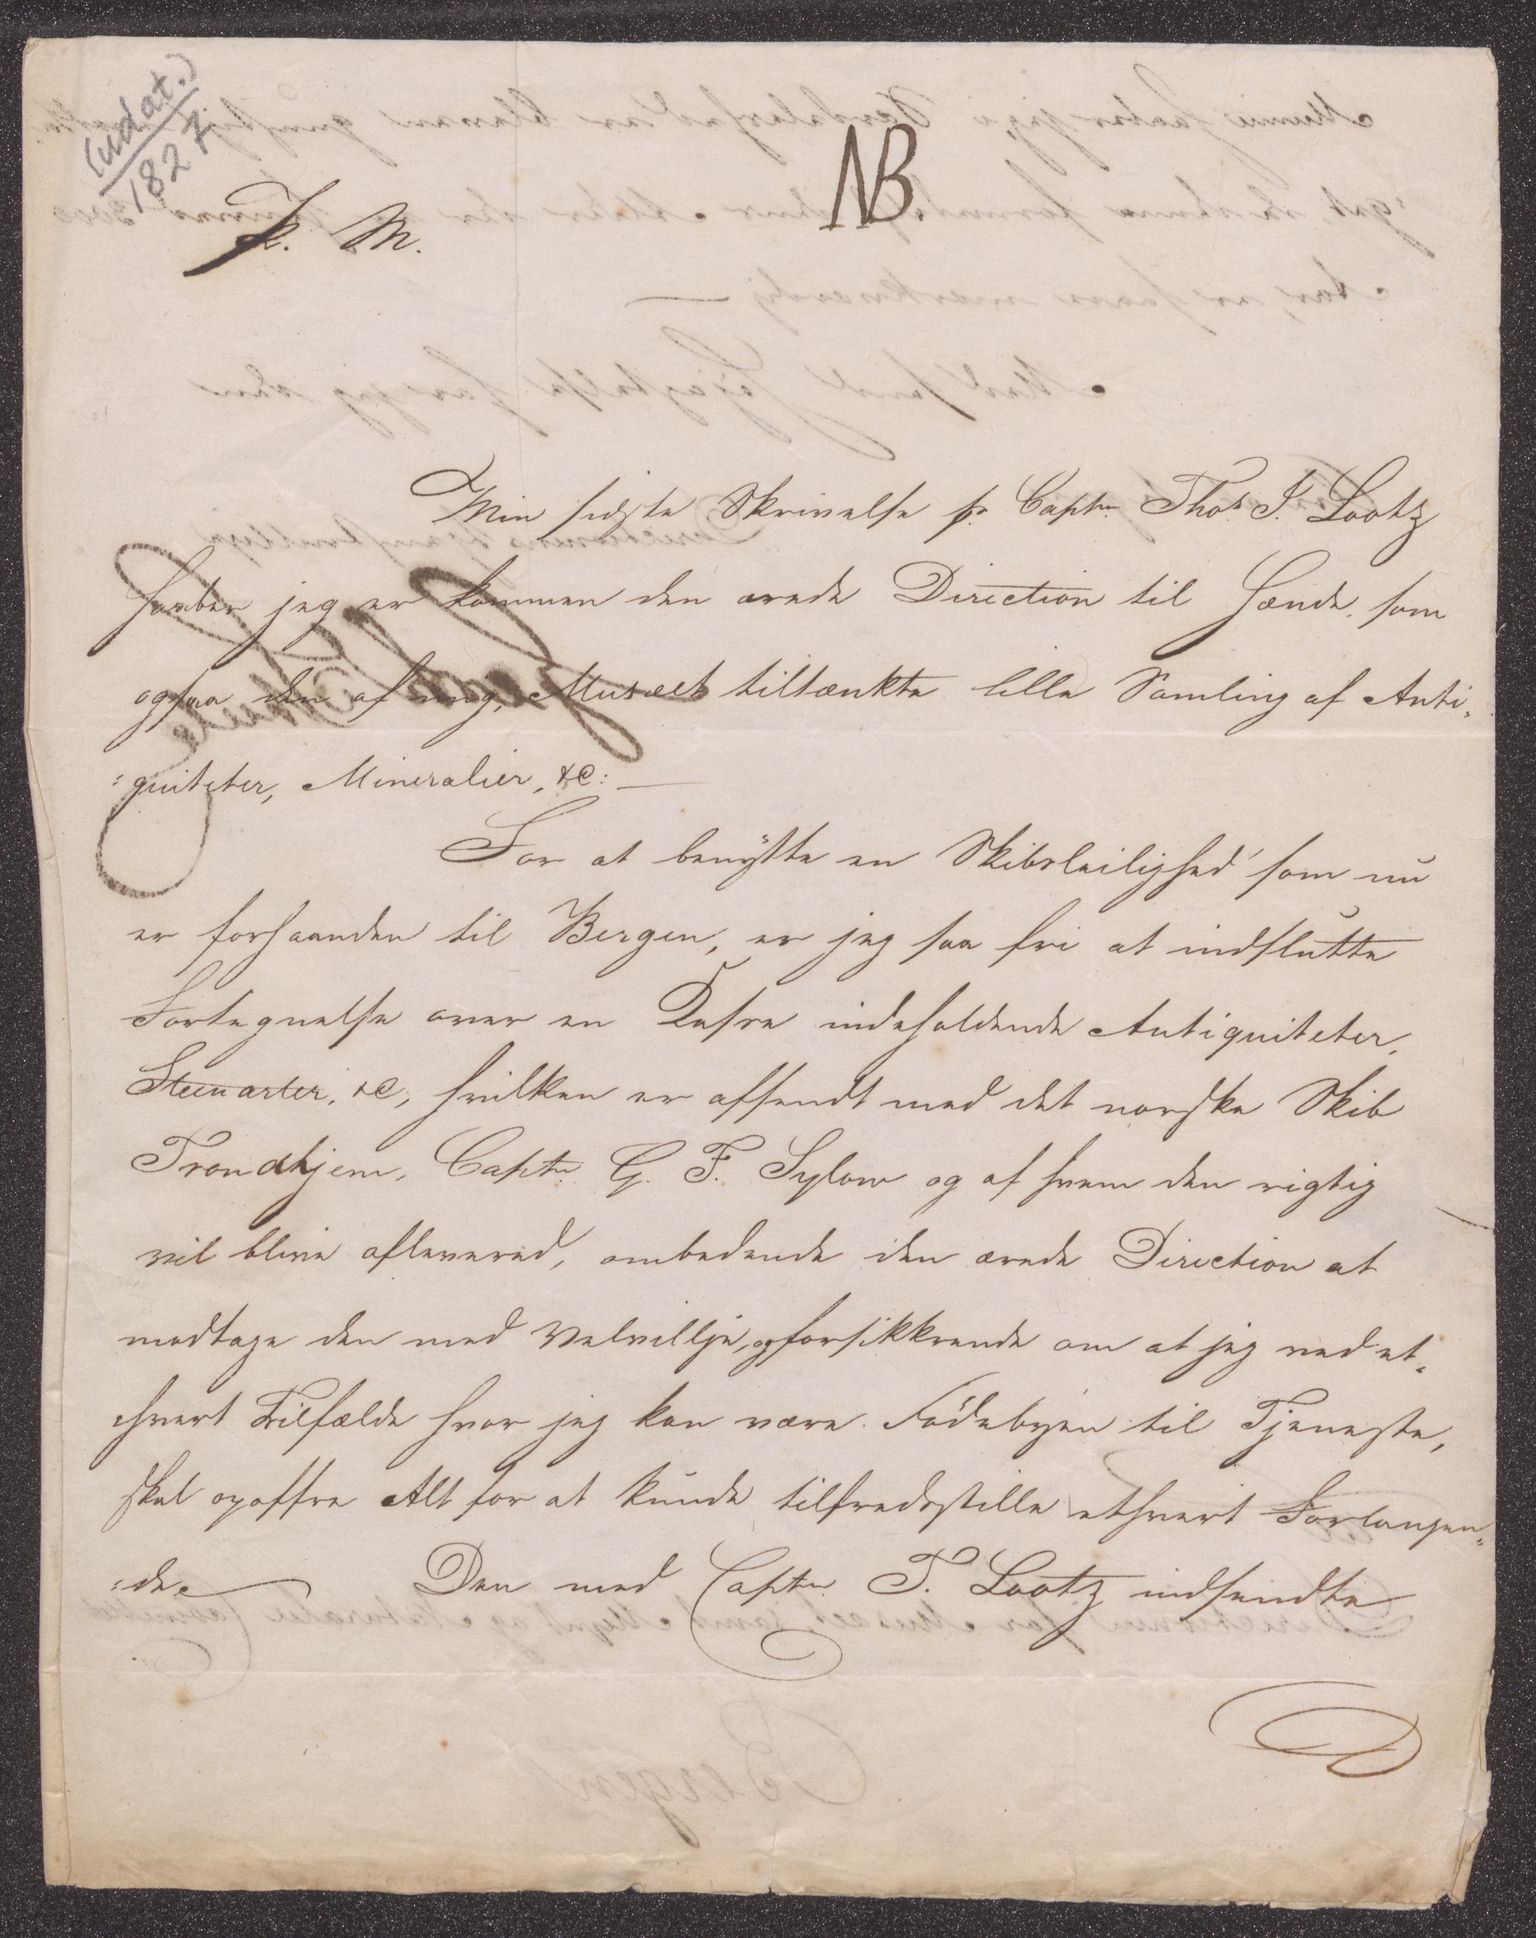 (udat.)
1827
NB.
P. M.
Min sidste Skrivelse pr Captn Thos J. Lootz
haaber jeg er kommen den ærede Direction til Hænde, som
ogsaa den af mig, Musæet tiltænkte lille Samling af Anti-
:quiteter, Mineralier, &c: —
For at benytte en Skibsleilighed som nu
er forhaanden til Bergen, er jeg saa fri at indslutte
Fortegnelse over en Kasse indeholdende Antiquiteter,
Steenarter, &c, hvilken er afsendt med det norske Skib
Trondhjem, Captn G. F. Sylow og af hvem den rigtig
vil blive afleveret, ombedende den ærede Direction at
modtage den med Velvillje, og forsikkrende om at jeg ved et-
hvert Tilfælde hvor jeg kan være Födebyen til Tjeneste,
skal opoffre Alt for at kunde tilfredsstille ethvert Forlangen-
:de. Den med Captn T. Lootz indsendte